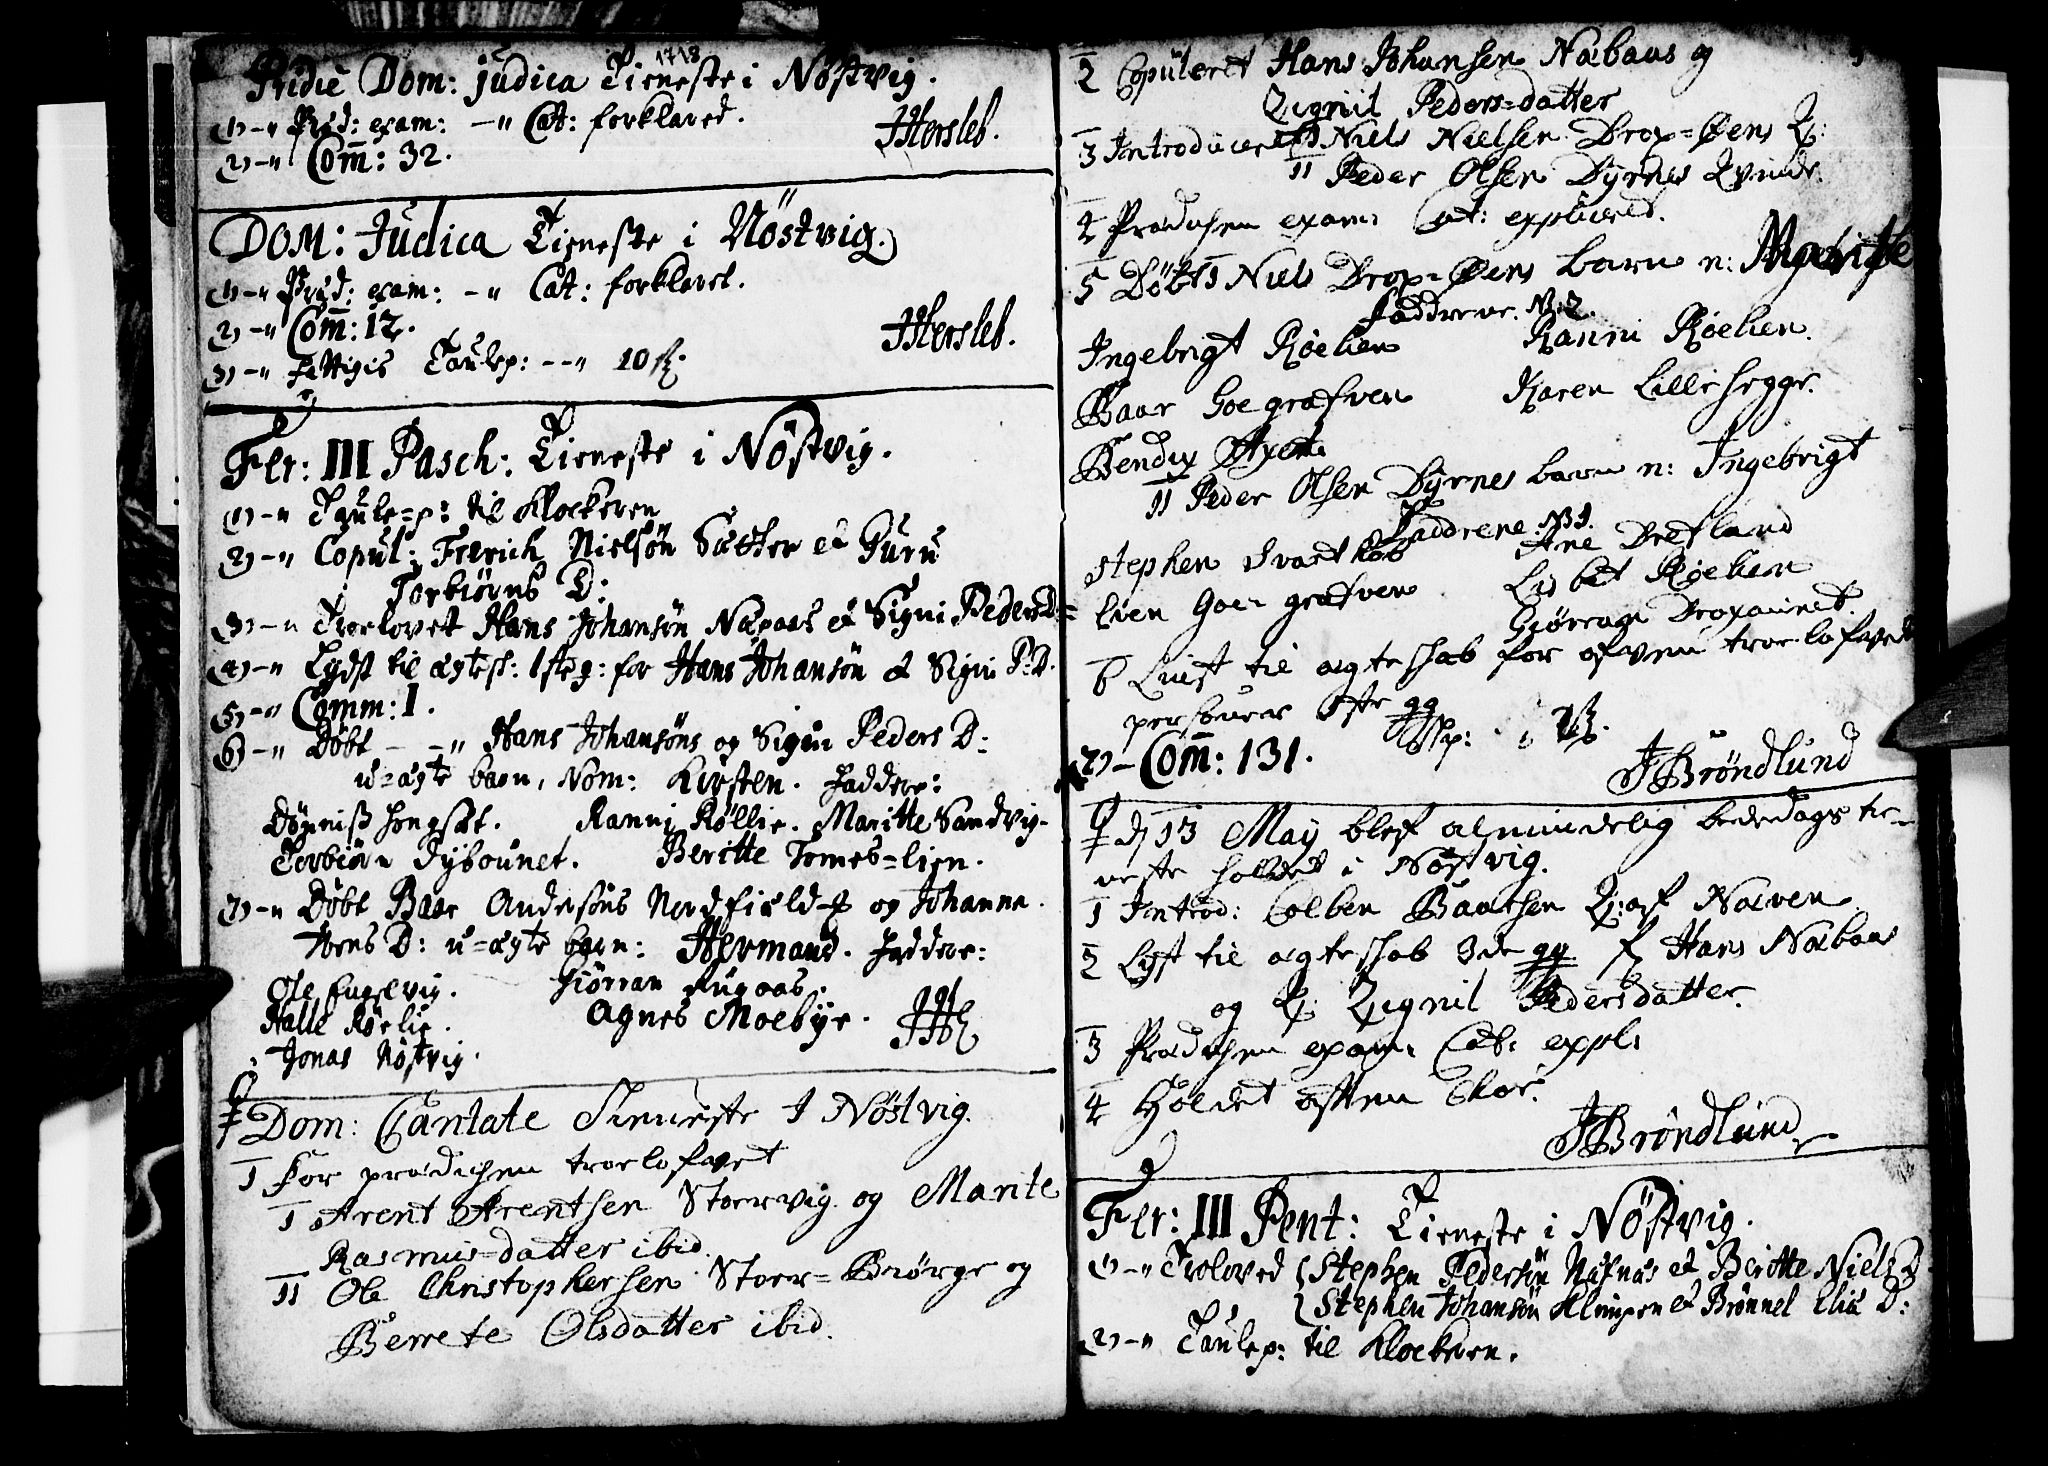 1718
Pridie Dom: Judica Tieneste i Nöstvig.
(1) -" Præd: exam: -" Cat: forklared.
(2) -" Com̄: 32.
JHersleb.
DOM: Judica Tieneste i Nöstvig.
(1) -" Præd: exam: -" Cat: forklaret.
(2) -" Com̄: 12.
(3) -" Fattigis Taulep: --" 10 ſß.
JHersleb.
Fer: III Pasch: Tieneste i Nöstvig.
(1) -" Taule=p: til Klockeren
(2) -" Copul: Frerich Nielsøn Sætter et Guru
Torbiørns D:
(3) -" Troelovet Hans Johansøn Næbaas et Signi Peders D:
(4) -" Lydst til ægtesk: 1ste g: for Hans Johansøn et Signi P: D.
(5) -" Comm: 1.
(6) -" Døbt - -" Hans Johansøns og Signi Peders D:
u=ægte barn, Nom: Kirsten. Faddere:
Dønniß Hongsæt. Ranni Røllie. Maritte Sandvig.
Torbiørn Dybounet. Beritte Tomes=lien.
(7) -" Døbt Baar Andersøns Nordfield og Johanna
Ivers D: u=ægte barn: Hermand. Faddere:
Ole Engelvig. Giørran Rugaas.
Halle Røelie. Agnes Moebye.
Jonas Nøstvig. JHL
Dom: Cantate Tieneste I Nøstvig.
1 For prædichen troelofvet
I Arent Arentsen Stoervig og Marite
Rasmus=datter ibid.
II Ole Christophersen Stoer=Biørge og
Berrete Olsdatter ibid.
2 Copuleret Hans Johansen Næbaas og
Zignil Peders=datter
3 Introduceret I Niels Nielsen Drop=Øens Q:
II Peder Olsen Dyrnes Qvinde.
4 Prædichen exam: Cat: expliceret.
5 Døbt I Niels Drop=Øens barn n: Marite
Faddrene. No 2.
Ingebrigt Røelien Ranni Røelien.
Baar Goe græfven Karen Lilleheggе.
Bendix Axen
II Peder Olsen Dyrnes barn n: Ingebrigt
Faddrene No 3.
Stephen Svart Ane Drefland
Lien Goe græfven Lisbet Røelien
Giørran Dropaunet.
6 Liust til ægteskab for ofven troelofvede
personer 1ste gg
(7) - Com̄: 131.
JBröndlund
d 13 May blef almindelig bededags tie-
neste holdet i Nøstvig.
1 Introd: Colben Baarsen Q: af Norven
2 Lyst til ægteskab 3de gg f Hans Næbaas
og Zignil Pedersdatter.
3 Prædichen exam: Cat: expl:
4 Holdet aften Chor.
JBröndlund
Fer: III Pent: Tieneste i Nöstvig.
(1) -" Troloved Stephen Pedersøn Næsnæs et Beritte Niels D
Stephen Johansøn Klingen et Brönnel Elis D:
(2) -" Taulep: til Klockeren.